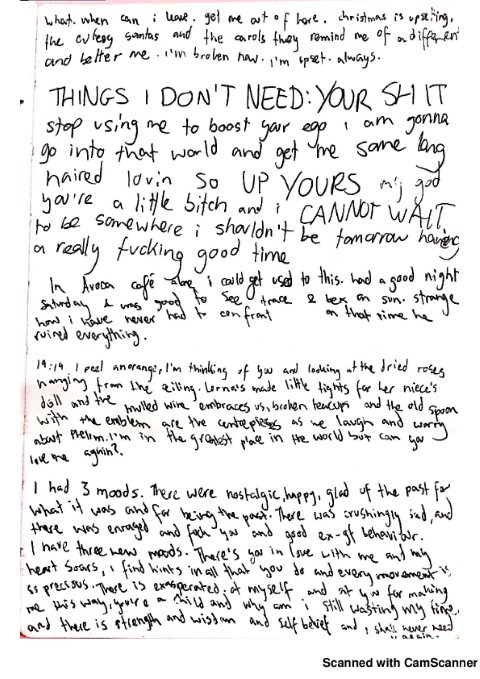 what. when can i leave. get me out of here. christmas is upsetting,
the cutesy santas and the carols they remind me of a different
and better me. i'm broken now. i'm upset. always.
THINGS I DON'T NEED: YOUR SHIT
stop using me to boost your ego i am gonna
go into that world and get me some long
haired lovin so UP YOURS my god
you're a little bitch and i CANNOT WAIT
to be somewhere i shouldn't be tomorrow having
a really fucking good time
In Avoca café alone, i could get used to this. had a good night
Saturday & was good to see & bex on sun. strange
how i have never had to confront on that time he
ruined everything.
14:14. I peel an orange, I'm thinking of you and looking at the dried roses
hanging from the ceiling. Lorna's made little tights for her niece's
doll and the mulled wine embraces us, broken teacups and the old spoon
with the emblem are the centrepieces as we laugh and worry
about . I'm in the greatest place in the world but can you
love me again?
I had 3 moods. There were nostalgic, happy, glad of the past for
what it was and for being the past. There was crushingly sad, and
there was enraged and fuck you and good ex-gf behaviour.
I have three new moods. There's you in love with me and my
heart soars, I find hints in all that you do and every movement is
so precious. There is exasperated; at myself and at you for making
me this way, you're a child and why am i still wasting my time.
and there is strength and wisdom and self belief and i shall never need
again.
Scanned with CamScanner